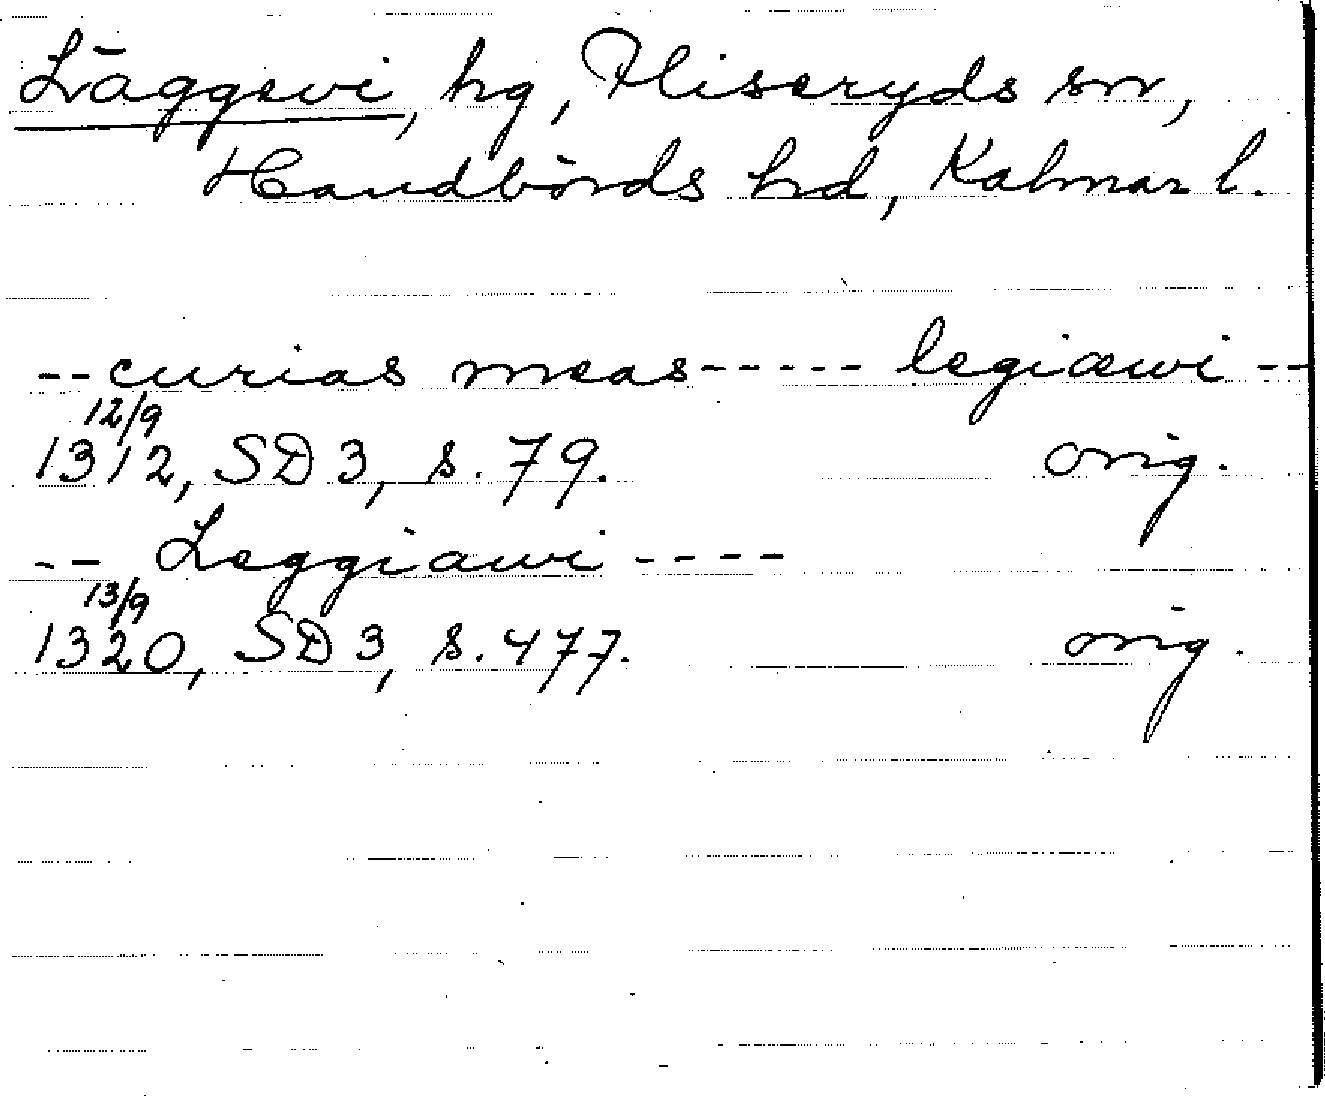 Läggevi, hg, Fliseryds sn,
Handbörds hd, Kalmar l.
--curias meas----- legiæwi --
12/9
1312, SD 3, s. 79. orig.
-- Leggiawi ----
13/9
1320, SD 3, s. 477. orig.